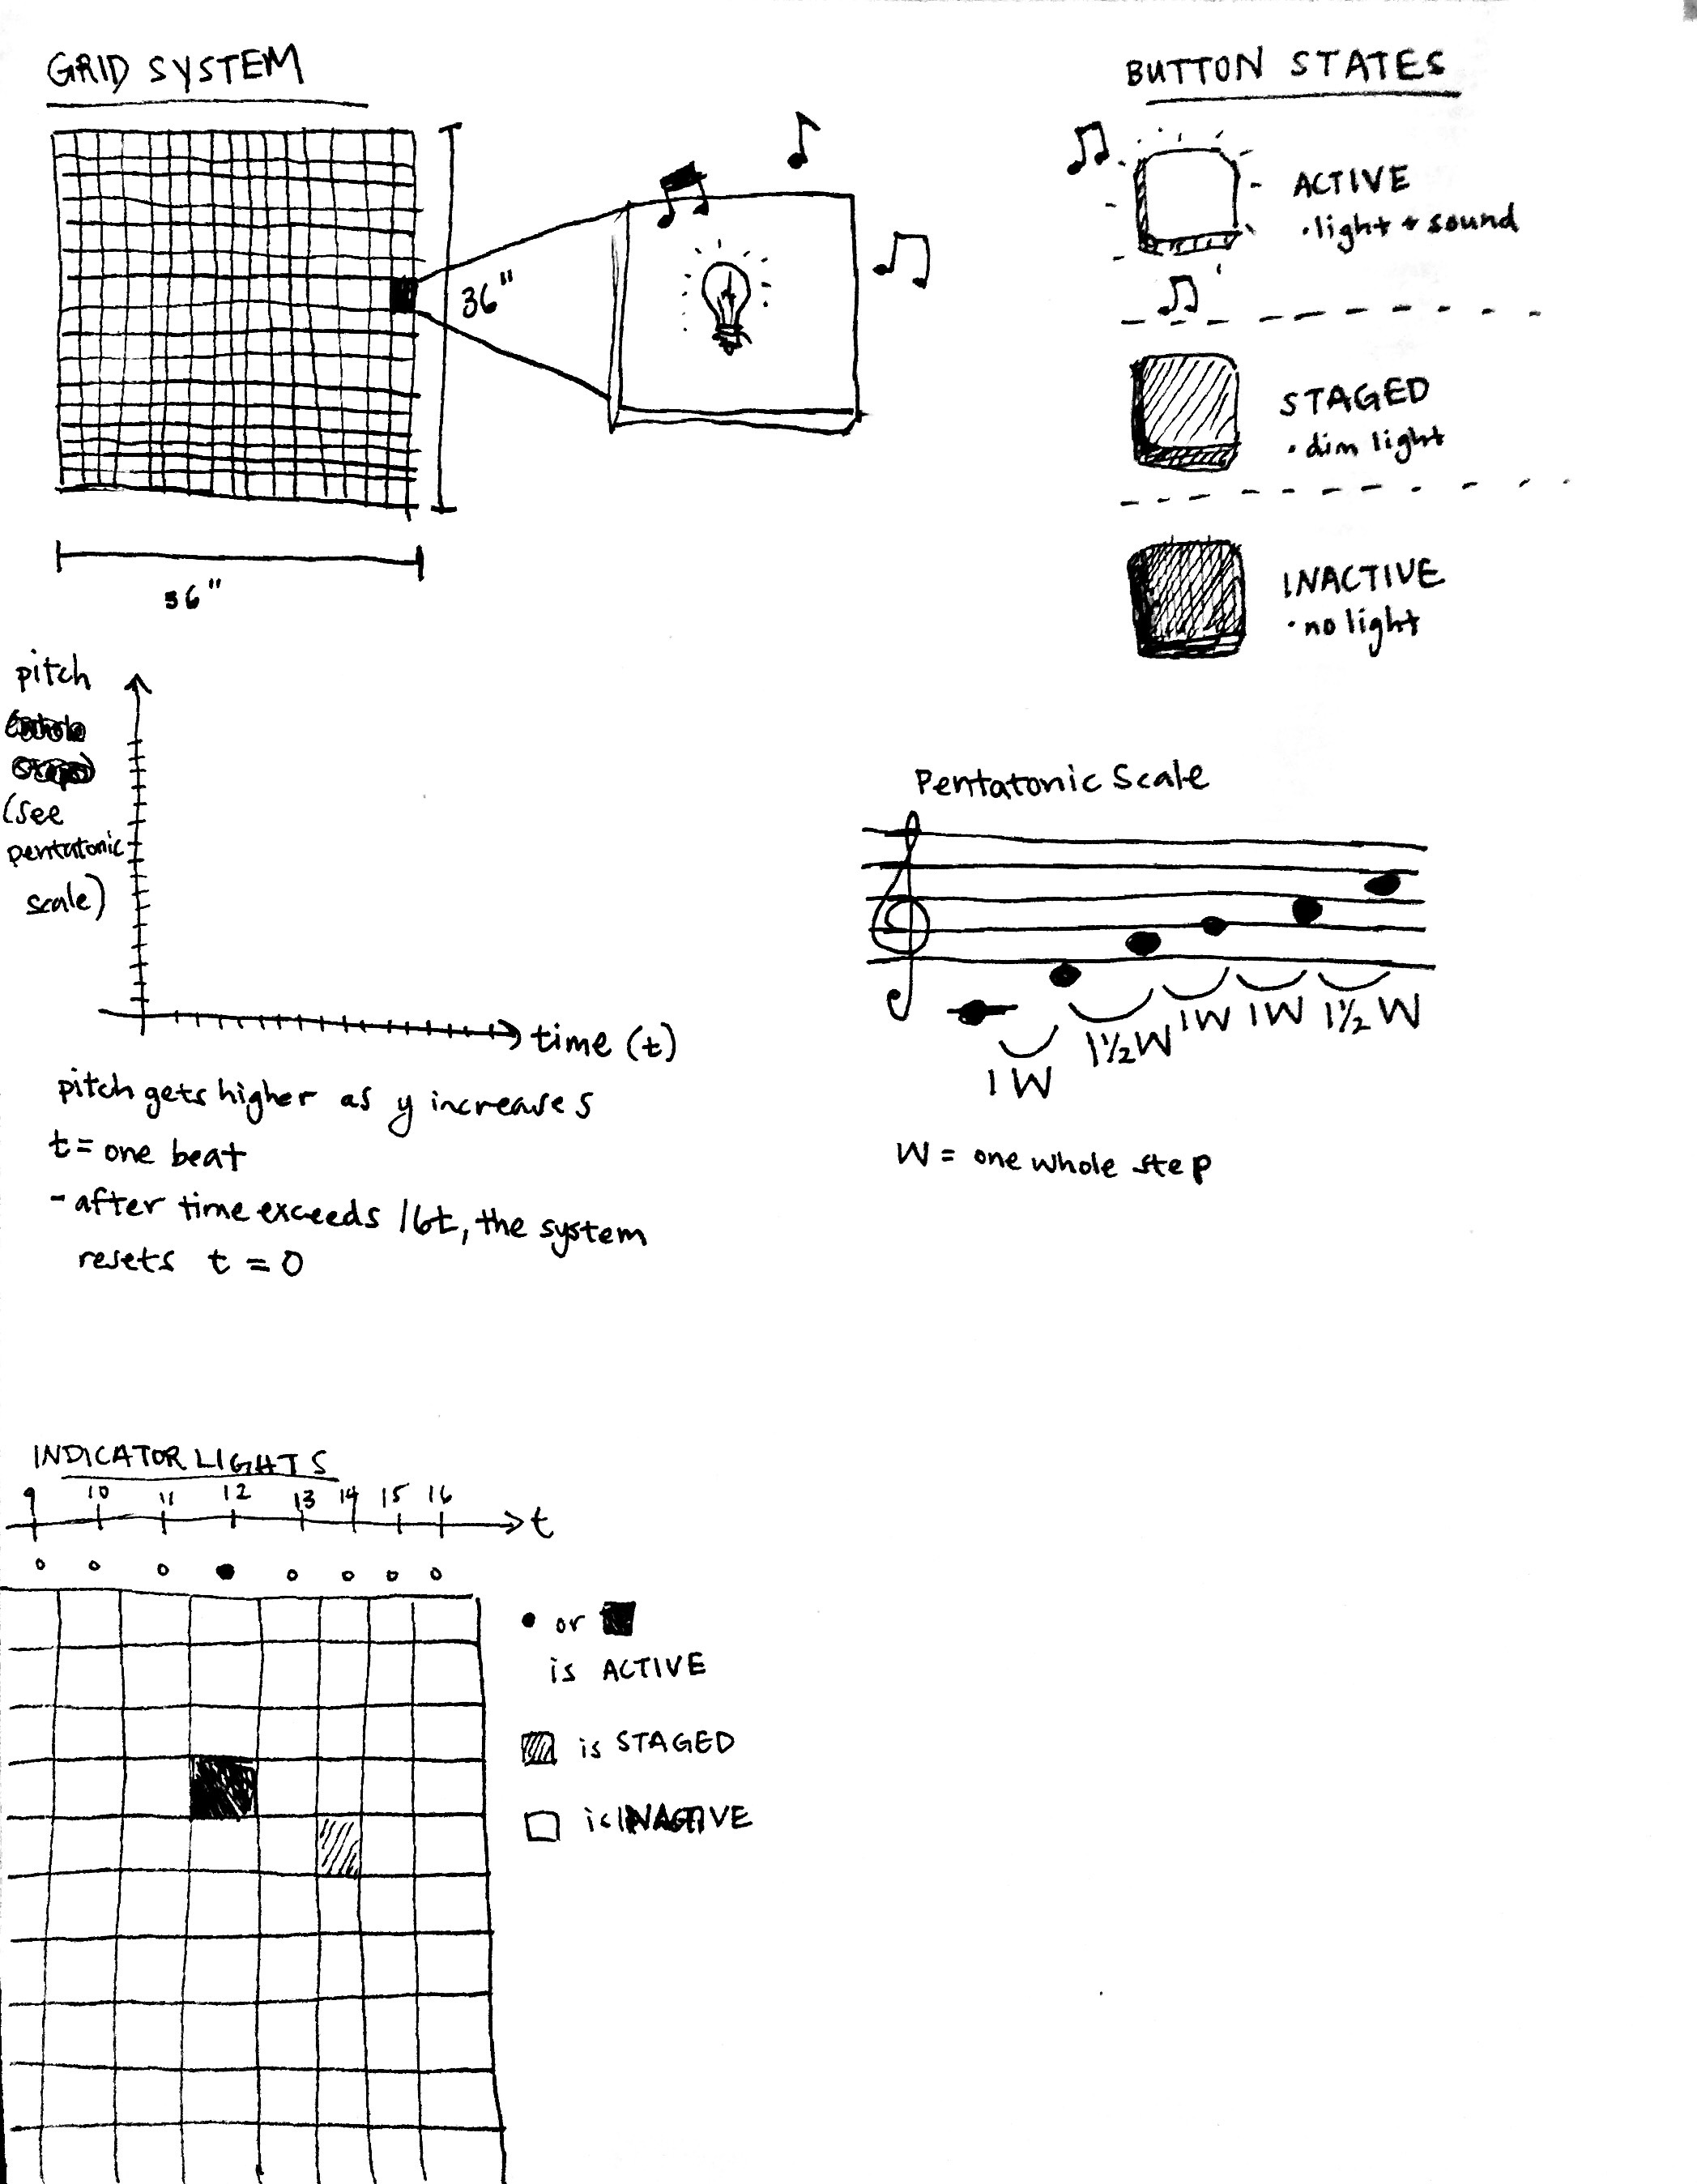 GRID SYSTEM
36"
36"
BUTTON STATES
ACTIVE
• light + sound
STAGED
• dim light
INACTIVE
• no light
pitch
(see
pentatonic
scale)
time (t)
pitch gets higher as y increases
t = one beat
- after time exceeds 16t, the system
resets t = 0
Pentatonic Scale
1W 1½W 1W 1W 1½W
W = one whole step
INDICATOR LIGHTS
9 10 11 12 13 14 15 16
t
• or ■
is ACTIVE
is STAGED
is INACTIVE